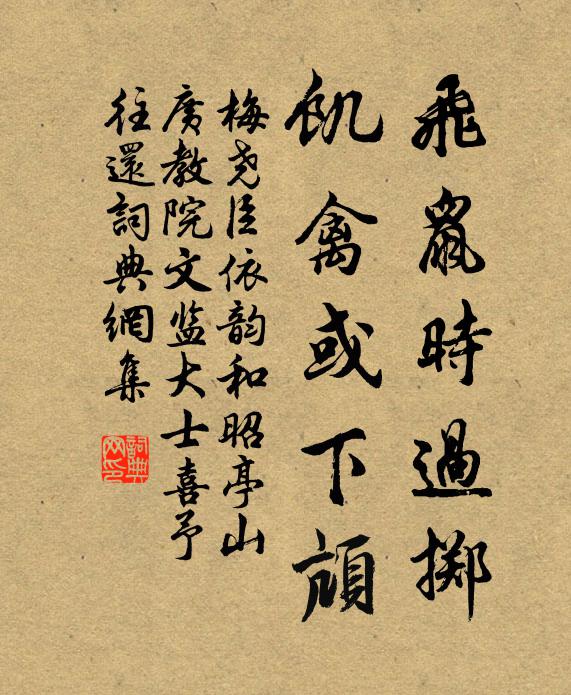 飛鼠時過擲
飢禽或下頏
梅尧臣依韵和昭亭山
廣教院文监大士喜予
往還詞典網集
詞典网印